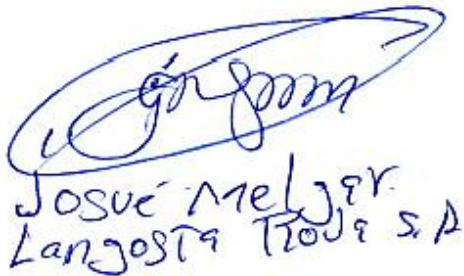 Josué Melgar
Langosta Roja S.A